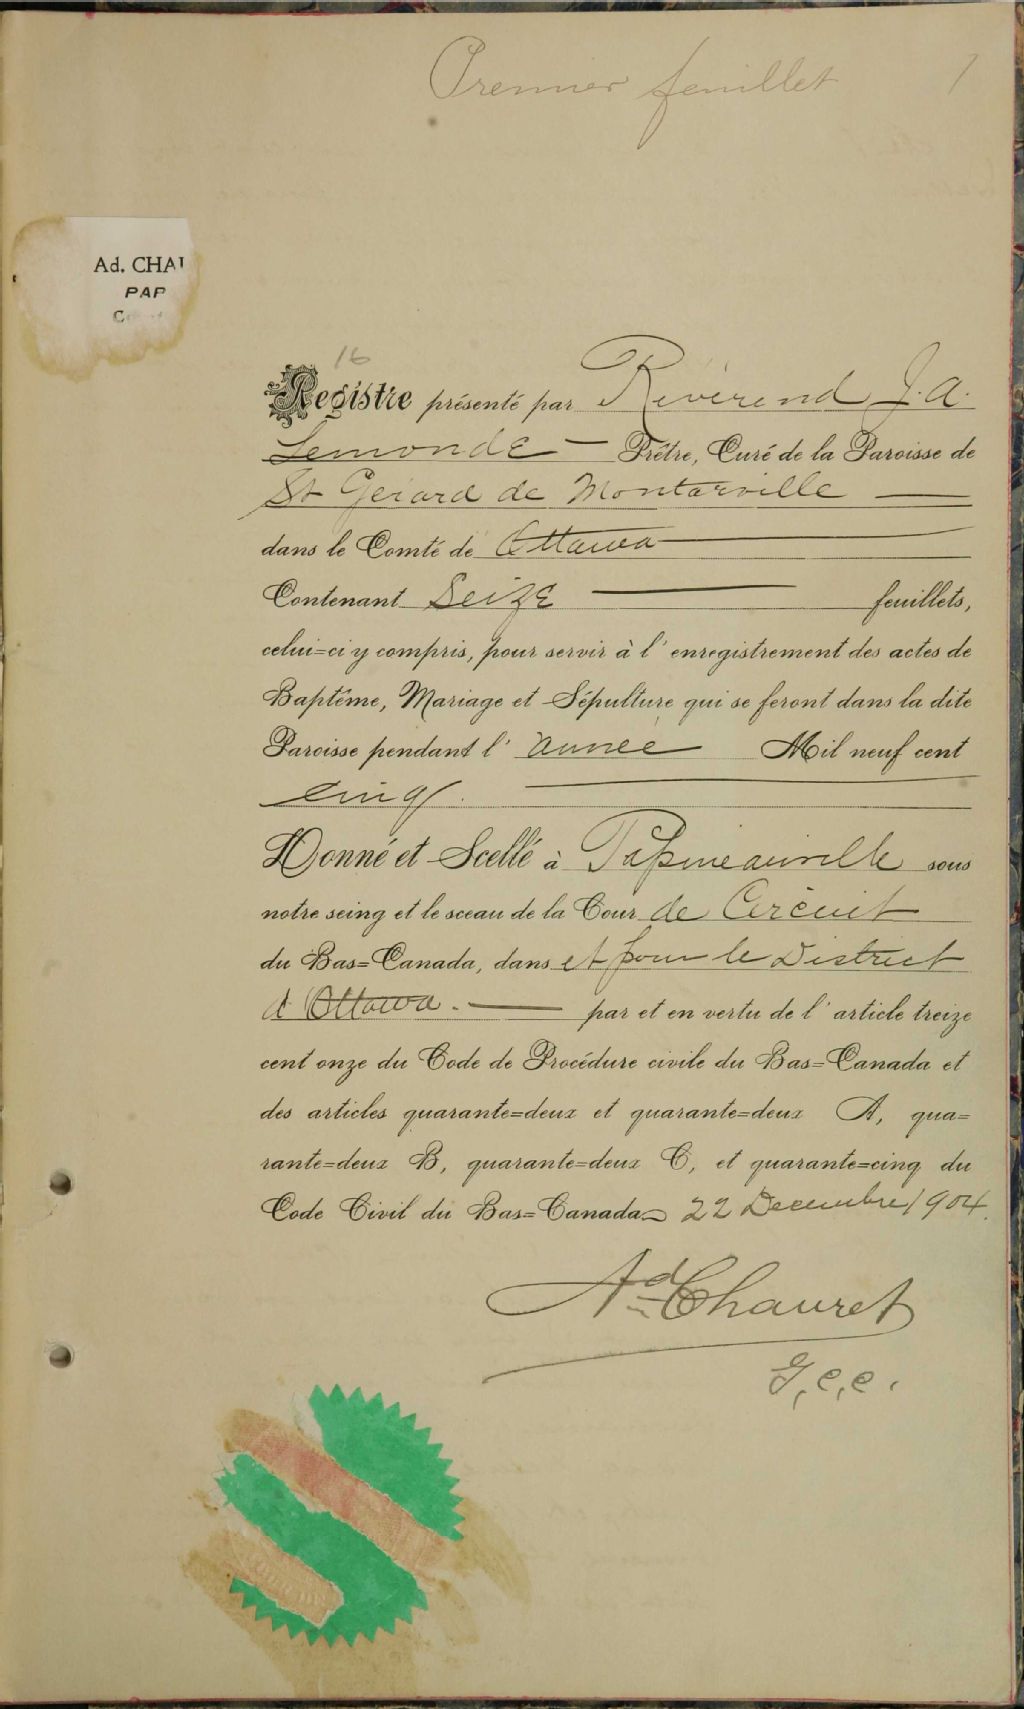 Premier feuillet 1
Ad. CHAU
PAP
16
Registre présenté par Révérend J. A.
Lemonde — Prêtre, Curé de la Paroisse de
St Gérard de Montarville —
dans le Comté de Ottawa —
Contenant Seize — feuillets,
celui=ci y compris, pour servir à l'enregistrement des actes de
Baptême, Mariage et Sépulture qui se feront dans la dite
Paroisse pendant l'année Mil neuf cent
cinq. —
Donné et Scellé à Papineauville sous
notre seing et le sceau de la Cour de Circuit
du Bas=Canada, dans et pour le District
d'Ottawa. — par et en vertu de l'article treize
cent onze du Code de Procédure civile du Bas=Canada et
des articles quarante=deux et quarante=deux A, qua=
rante=deux B, quarante=deux C, et quarante=cinq du
Code Civil du Bas=Canada 22 Decembre 1904.
Ad Chauret
G, c, c.